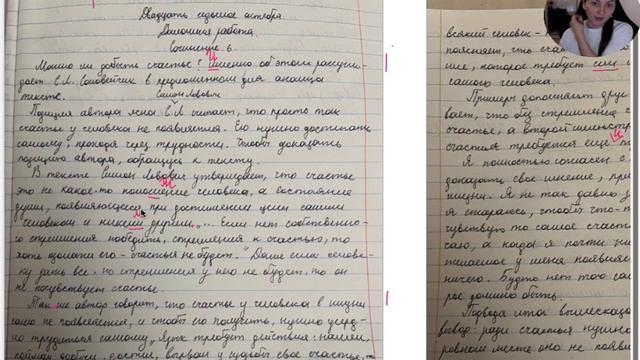 Двадцать седьмое октября.
Домашняя работа.
Сочинение 6.
Можно ли добыть счастье? Именно об этом рассуж-
дает С.Л. Соловейчик в предложенном для анализа
тексте. Симон Львович
Позиция автора ясна. С.Л. считает, что просто так
счастье у человека не появляется. Его нужно достигать
самому, проходя через трудности. Чтобы доказать
позицию автора, обращусь к тексту.
В тексте Симон Львович утверждает, что счастье
это не какое-то положение человека, а состояние
души, появляющееся при достижении цели самим
человеком и никем другим: "... Если нет собственно-
го стремления победить, стремления к счастью, то
хоть
счастья не будет."
ку дать все, но стремления у него не будет, то он
не почувствует счастье.
Так же автор говорит, что счастье у человека в жизни
само не появляется, и чтобы его получить, нужно усерд-
но трудиться самому: "
свое счастье,
всякий человек -
поясняет, что
ние, которое требует
самого человека.
Примеры дополняют друг
вает, что без стремления
счастье, а второй
счастья требуется еще
Я полностью согласен с
доказать свое мнение,
жизни. Я не так давно
я стараюсь, чтобы что-
чувствую то самое счаст
чаю, а когда я почти
у меня появляе
ничего. Будто нет того
рое должно быть.
Подводя итог
вывод: ради счастья нужно
ровном месте оно не появи